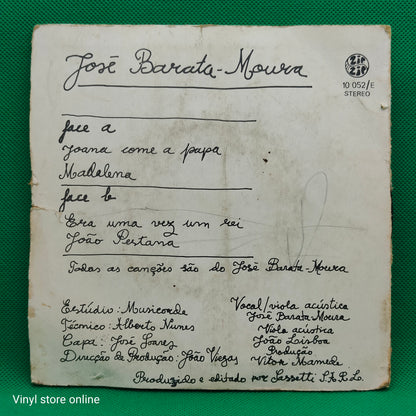 José Barata-Moura
ZIP ZIP
10 052/E
STEREO
face a
Joana come a papa
Madalena
face b
Era uma vez um rei
João Pestana
Todas as canções são do José Barata-Moura
Estúdio: Musicorde
Técnico: Alberto Nunes
Capa: José Soares
Direcção de Produção: João Viegas
Vocal/viola acústica
José Barata Moura
Viola acústica
João Lisboa
Produção
Vitor Mamede
Produzido e editado por Sassetti S.A.R.L.
Vinyl store online